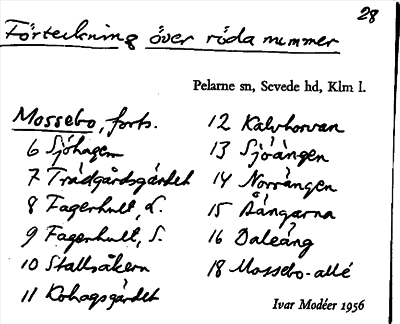 28
Förteckning över röda nummer
Pelarne sn, Sevede hd, Klm l.
Mossebo, forts.
6 Sjöhagen
7 Trädgårdsgärdet
8 Fagerhult, L.
9 Fagerhult, S.
10 Stallsåkern
11 Kohagsgärdet
12 Kalvhorvan
13 Sjöängen
14 Norrängen
15 Ångarna
16 Daleäng
18 Mossebo-allé
Ivar Modéer 1956